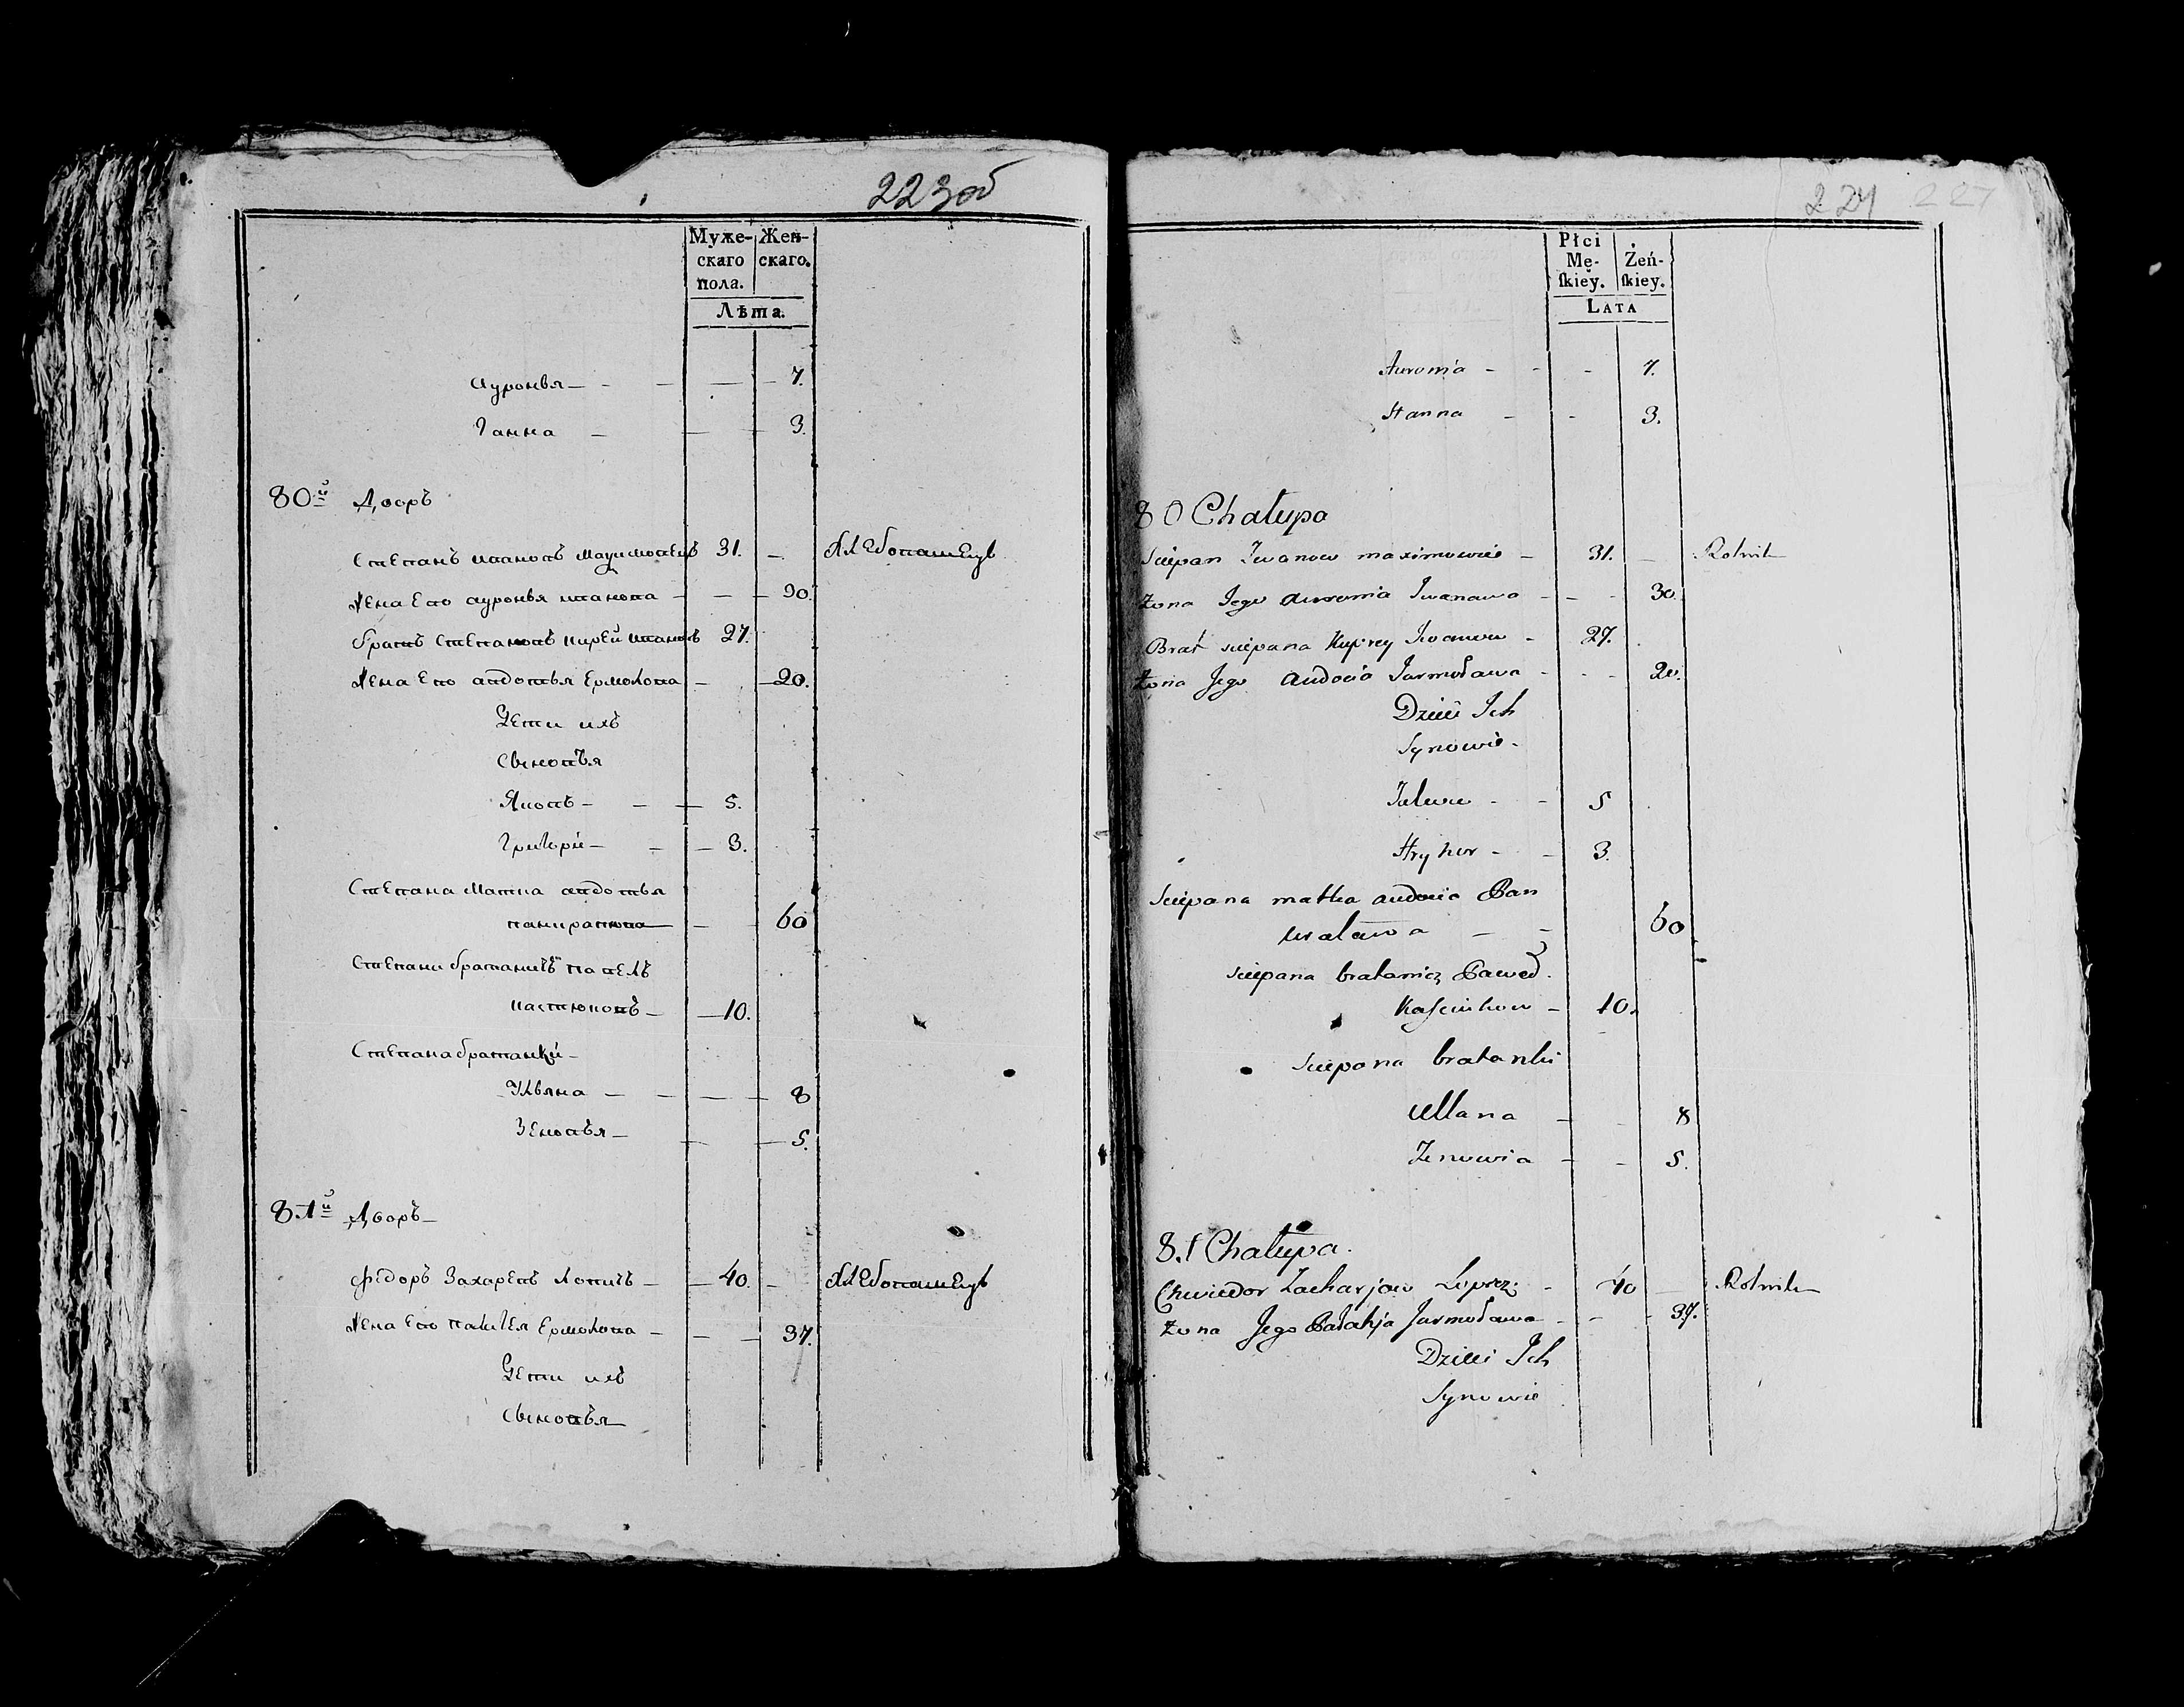 223об
Муже-
скаго
пола.
Жен-
скаго.
Лѣта.
Ауронья — — — — 7.
Ганна — — — 3.
80й Дворъ
Степанъ Ивановъ Махимовецъ 31. — Хлебопашецъ
Жена Его Ауронья Иванова — — — 30.
Братъ Степановъ Кирей Ивановъ 27.
Жена Его Авдотья Ермолова — — 20.
Дети ихъ
Сыновья
Яковъ — — — 5.
Григорій — — — 3.
Степана Матка Авдотья
Панкратова — — 60
Степана братаничъ Павелъ
Кастюковъ — — 10.
Степана братанки —
Ульяна — — — — 8
Зеновья — — — 5.
81й Дворъ —
Федоръ Захаревъ — — 40. — Хлебопашецъ
Жена Его Ермолова — — — 37.
Дети ихъ
Сыновья
224 227
Płci
Mę-
ſkiey.
Żeń-
ſkiey.
LATA
Auronia - - - 7.
Hanna - - 3.
80 Chałupa
Sciepan Iwanow Maximowiec - 31. — Rolnik
Żona Jego Auronia Iwanawa - - - 30.
Brat Sciepana Kuprey Iwanow - 27.
Żona Jego Audocia Jarmoława - - - 20.
Dzieci Ich
Synowie -
Jakow - - 5
Hryhor - - 3.
Sciepana matka audocia Pan
kratawa — - 60
Sciepana bratanicz Paweł
Kaściukow - 10.
Sciepana bratanki
Ullana - - 8
Zenowia - - 5.
81 Chałupa.
Chwiedor Zacharjow - 40 — Rolnik
Żona Jego Pałahja Jarmoława - - - 37.
Dzieci Ich
Synowie